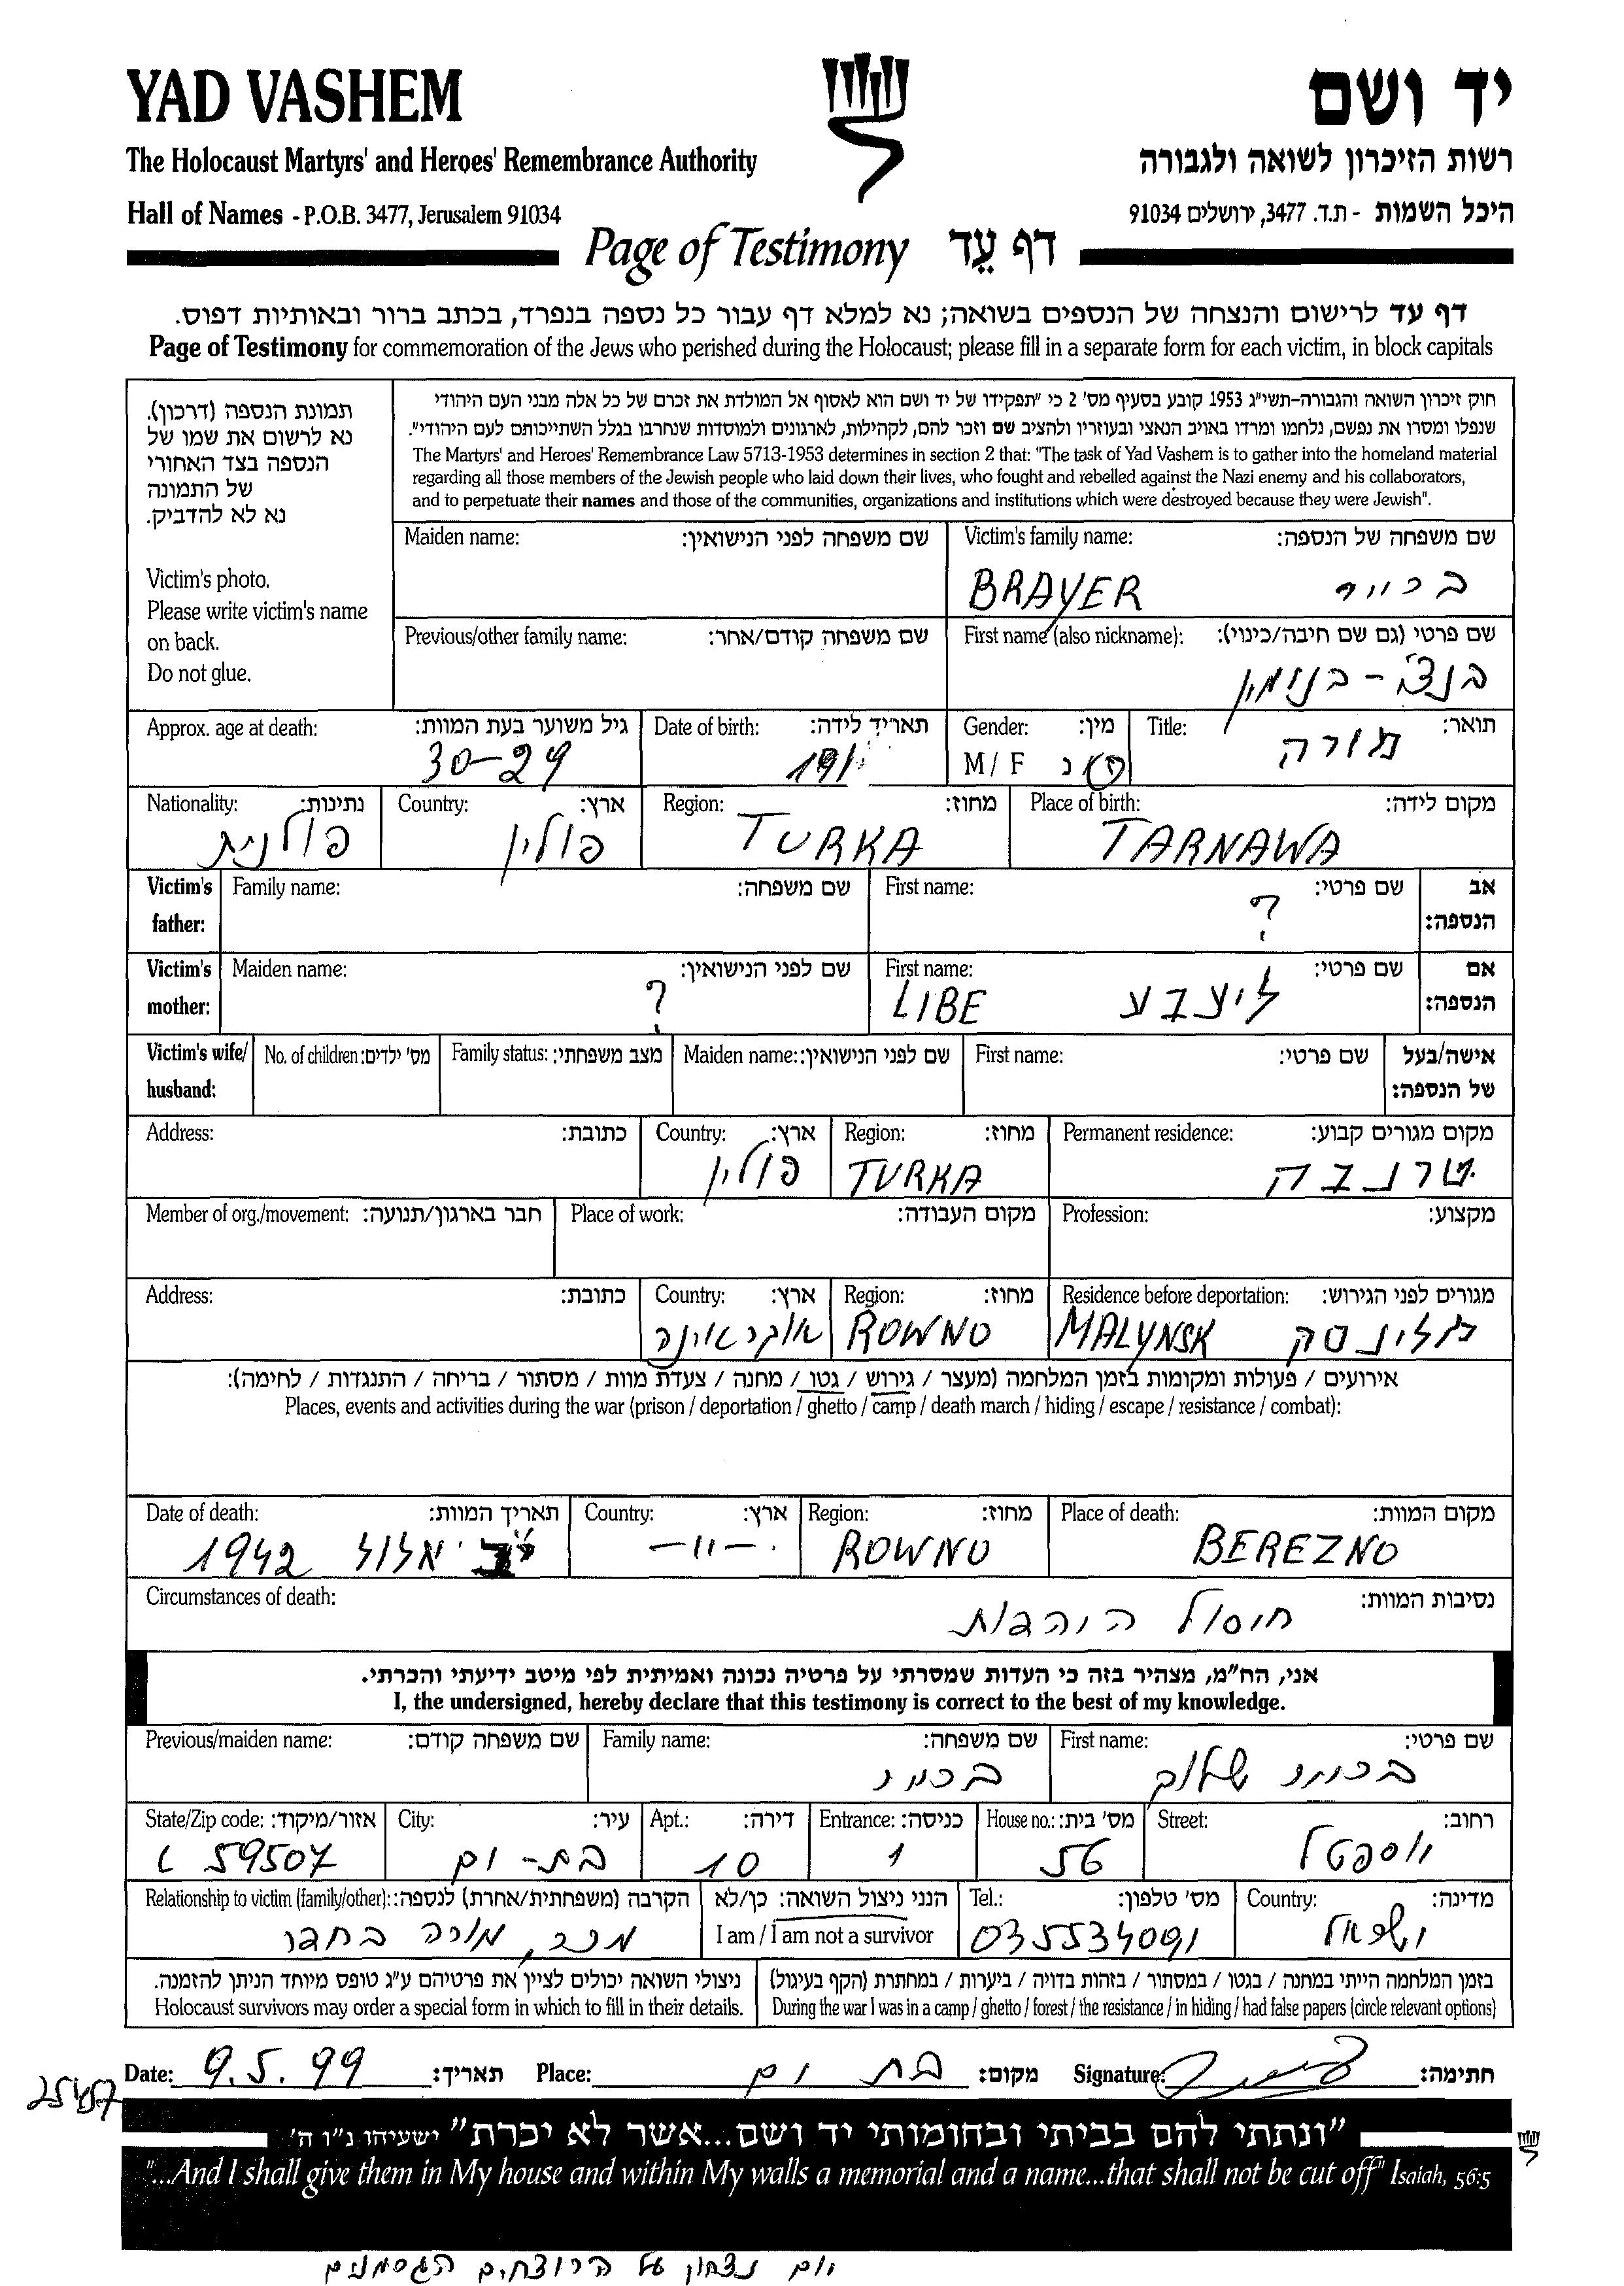 YAD VASHEM
יד ושם
The Holocaust Martyrs' and Heroes' Remembrance Authority
רשות הזיכרון לשואה ולגבורה
Hall of Names - P.O.B. 3477, Jerusalem 91034
היכל השמות - ת.ד. 3477, ירושלים 91034
Page of Testimony דף עֵד
דף עד לרישום והנצחה של הנספים בשואה; נא למלא דף עבור כל נספה בנפרד, בכתב ברור ובאותיות דפוס.
Page of Testimony for commemoration of the Jews who perished during the Holocaust; please fill in a separate form for each victim, in block capitals
תמונת הנספה (דרכון).
נא לרשום את שמו של
הנספה בצד האחורי
של התמונה
נא לא להדביק.
Victim's photo.
Please write victim's name
on back.
Do not glue.
חוק זיכרון השואה והגבורה-תשי"ג 1953 קובע בסעיף מס' 2 כי "תפקידו של יד ושם הוא לאסוף אל המולדת את זכרם של כל אלה מבני העם היהודי
שנפלו ומסרו את נפשם, נלחמו ומרדו באויב הנאצי ובעוזריו ולהציב שם וזכר להם, לקהילות, לארגונים ולמוסדות שנחרבו בגלל השתייכותם לעם היהודי".
The Martyrs' and Heroes' Remembrance Law 5713-1953 determines in section 2 that: "The task of Yad Vashem is to gather into the homeland material
regarding all those members of the Jewish people who laid down their lives, who fought and rebelled against the Nazi enemy and his collaborators,
and to perpetuate their names and those of the communities, organizations and institutions which were destroyed because they were Jewish".
Maiden name: שם משפחה לפני הנישואין: Victim's family name: שם משפחה של הנספה:
BRAYER ברייר
Previous/other family name: שם משפחה קודם/אחר: First name (also nickname): שם פרטי (גם שם חיבה/כינוי):
בנימין
Approx. age at death: גיל משוער בעת המוות: Date of birth: תאריך לידה: Gender: מין: Title: תואר:
30-29 191 M / F ז / נ מורה
Nationality: נתינות: Country: ארץ: Region: מחוז: Place of birth: מקום לידה:
פולנית פולין TURKA TARNAWA
Victim's father: Family name: שם משפחה: First name: שם פרטי: אב הנספה:
?
Victim's mother: Maiden name: שם לפני הנישואין: First name: שם פרטי: אם הנספה:
? LIBE
Victim's wife/ husband: No. of children: מס' ילדים: Family status: מצב משפחתי: Maiden name: שם לפני הנישואין: First name: שם פרטי: אישה/בעל של הנספה:
Address: כתובת: Country: ארץ: Region: מחוז: Permanent residence: מקום מגורים קבוע:
פולין TURKA טרנבה
Member of org./movement: חבר בארגון/תנועה: Place of work: מקום העבודה: Profession: מקצוע:
Address: כתובת: Country: ארץ: Region: מחוז: Residence before deportation: מגורים לפני הגירוש:
אוקראינה ROWNO MALYNSK מלינסק
אירועים / פעולות ומקומות בזמן המלחמה (מעצר / גירוש / גטו / מחנה / צעדת מוות / מסתור / בריחה / התנגדות / לחימה):
Places, events and activities during the war (prison / deportation / ghetto / camp / death march / hiding / escape / resistance / combat):
Date of death: תאריך המוות: Country: ארץ: Region: מחוז: Place of death: מקום המוות:
אלול 1942 -"- ROWNO BEREZNO
Circumstances of death: נסיבות המוות:
חוסול
אני, הח"מ, מצהיר בזה כי העדות שמסרתי על פרטיה נכונה ואמיתית לפי מיטב ידיעתי והכרתי.
I, the undersigned, hereby declare that this testimony is correct to the best of my knowledge.
Previous/maiden name: שם משפחה קודם: Family name: שם משפחה: First name: שם פרטי:
שלום
State/Zip code: אזור/מיקוד: City: עיר: Apt.: דירה: Entrance: כניסה: House no.: מס' בית: Street: רחוב:
59507 בת-ים 10 1 56
Relationship to victim (family/other): הקרבה (משפחתית/אחרת) לנספה: הנני ניצול השואה: כן/לא Tel.: מס' טלפון: Country: מדינה:
מכר, מורה I am / I am not a survivor 035534091 ישראל
ניצולי השואה יכולים לציין את פרטיהם ע"ג טופס מיוחד הניתן להזמנה. בזמן המלחמה הייתי במחנה / בגטו / במסתור / בזהות בדויה / ביערות / במחתרת (הקף בעיגול)
Holocaust survivors may order a special form in which to fill in their details. During the war I was in a camp / ghetto / forest / the resistance / in hiding / had false papers (circle relevant options)
Date: 9.5.99 תאריך: Place: בת ים מקום: Signature: חתימה:
"ונתתי להם בביתי ובחומותי יד ושם...אשר לא יכרת" ישעיהו נ"ו ה'
"...And I shall give them in My house and within My walls a memorial and a name...that shall not be cut off" Isaiah, 56:5
יום נצחון על הרוצחים הגרמנים